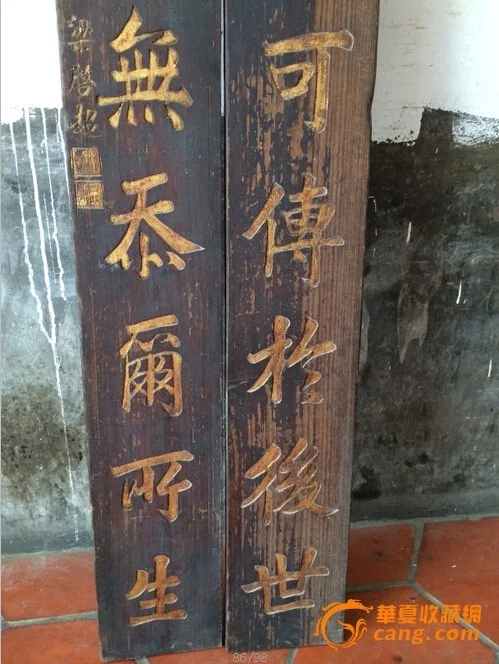 可傳於後世
無忝爾所生
梁啓超
華夏收藏網
cang.com
86/98